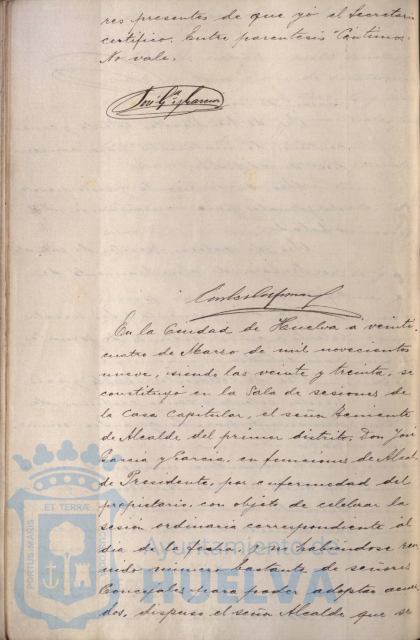 res presentes de que yo el Secretario
certifico. Entre parentesis "Continua"
No vale.
En la Ciudad de Huelva a veinti
cuatro de Marzo de mil novecientos
nueve, siendo las veinte y treinta, se
constituyó en la Sala de sesiones de
la Casa Capitular, el señor Teniente
de Alcalde del primer distrito, Don José
Garcia y Garcia, en funciones de Alcal
de Presidente, por enfermedad del
propietario, con objeto de celebrar la
sesión ordinaria correspondiente al
dia de la fecha y no habiendose reu
nido número bastante de señores
Concejales para poder adoptar acuer
dos, dispuso el señor Alcalde que se
PORTUS MARIS
ET TERRÆ
CUSTODIA
Ayuntamiento de
HUELVA